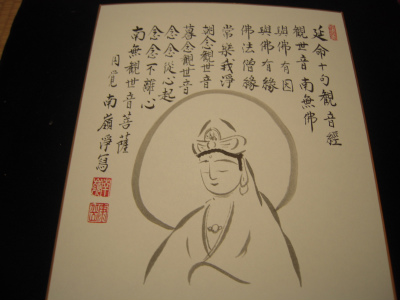 延命十句觀音經
觀世音 南無佛
與佛有因
與佛有緣
佛法僧緣
常樂我淨
朝念觀世音
暮念觀世音
念念從心起
念念不離心
南無觀世音菩薩
円覺 南嶺淨寫